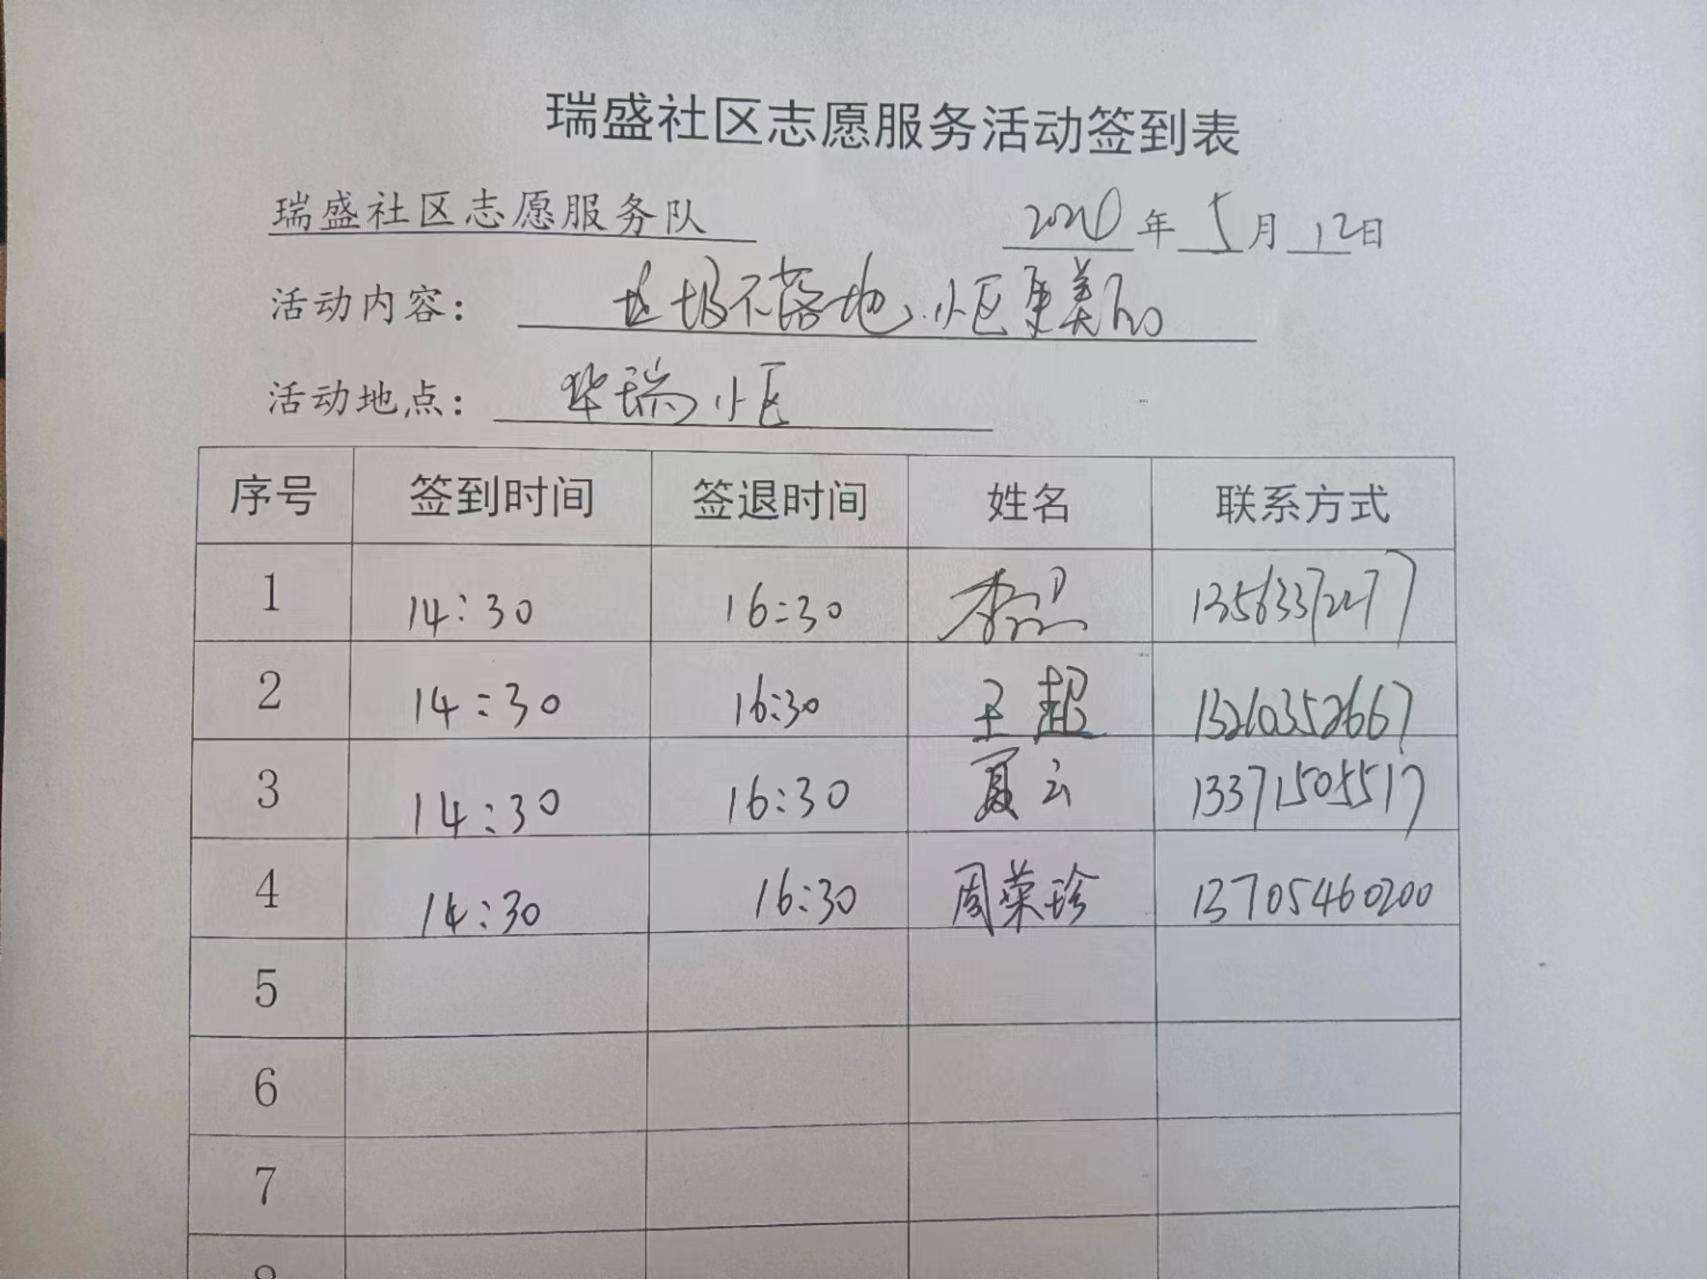 瑞盛社区志愿服务活动签到表
瑞盛社区志愿服务队 年 5月 12日
活动内容： 垃圾不落地，小区更美丽
活动地点： 华瑞小区
序号 签到时间 签退时间 姓名 联系方式
1 14:30 16:30
2 14:30 16:30 王超 13210352667
3 14:30 16:30 夏云 13371505517
4 14:30 16:30 周荣珍 13705460200
5
6
7